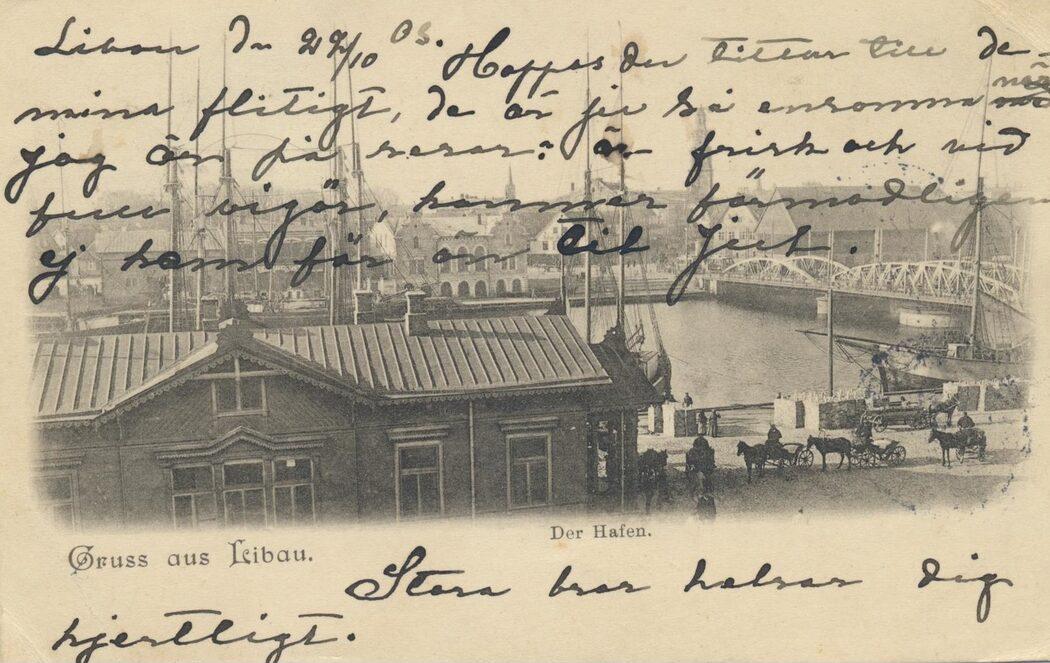 Libau dn 27/10 03. Hoppas du tittar till de
mina flitigt, de är ju så ensomma när
jag är på resor. är frisk och vid
full vigör, kommer förmodligen
ej hem för än till Jul.
Gruss aus Libau.
Der Hafen.
Stora bror helsar dig
hjertligt.